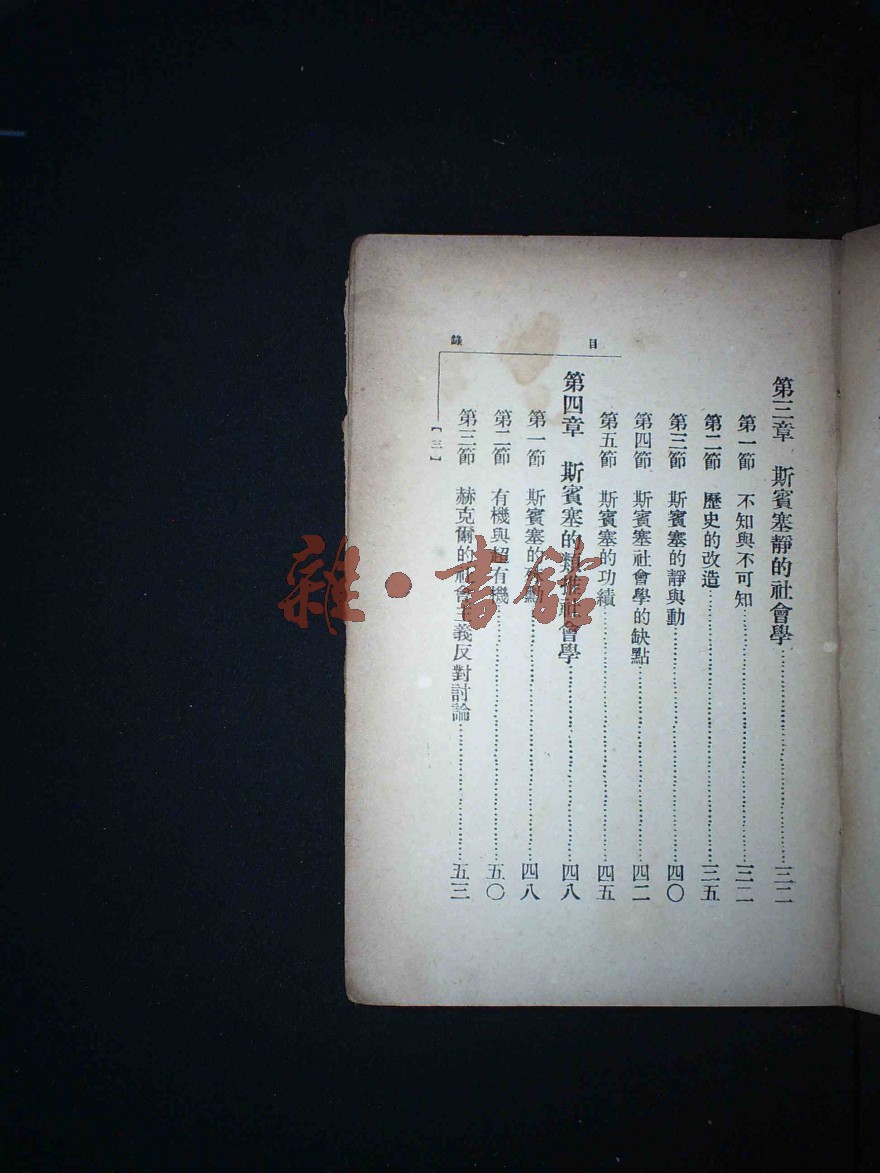 目錄
第三章 斯賓塞靜的社會學……三二
第一節 不知與不可知……三二
第二節 歷史的改造……三五
第三節 斯賓塞的靜與動……四〇
第四節 斯賓塞社會學的缺點……四二
第五節 斯賓塞的功績……四五
第四章 斯賓塞的類推社會學……四八
第一節 斯賓塞的點……四八
第二節 有機與超有機……五〇
第三節 赫克爾的社會主義反對討論……五三
【三】
雜·書館